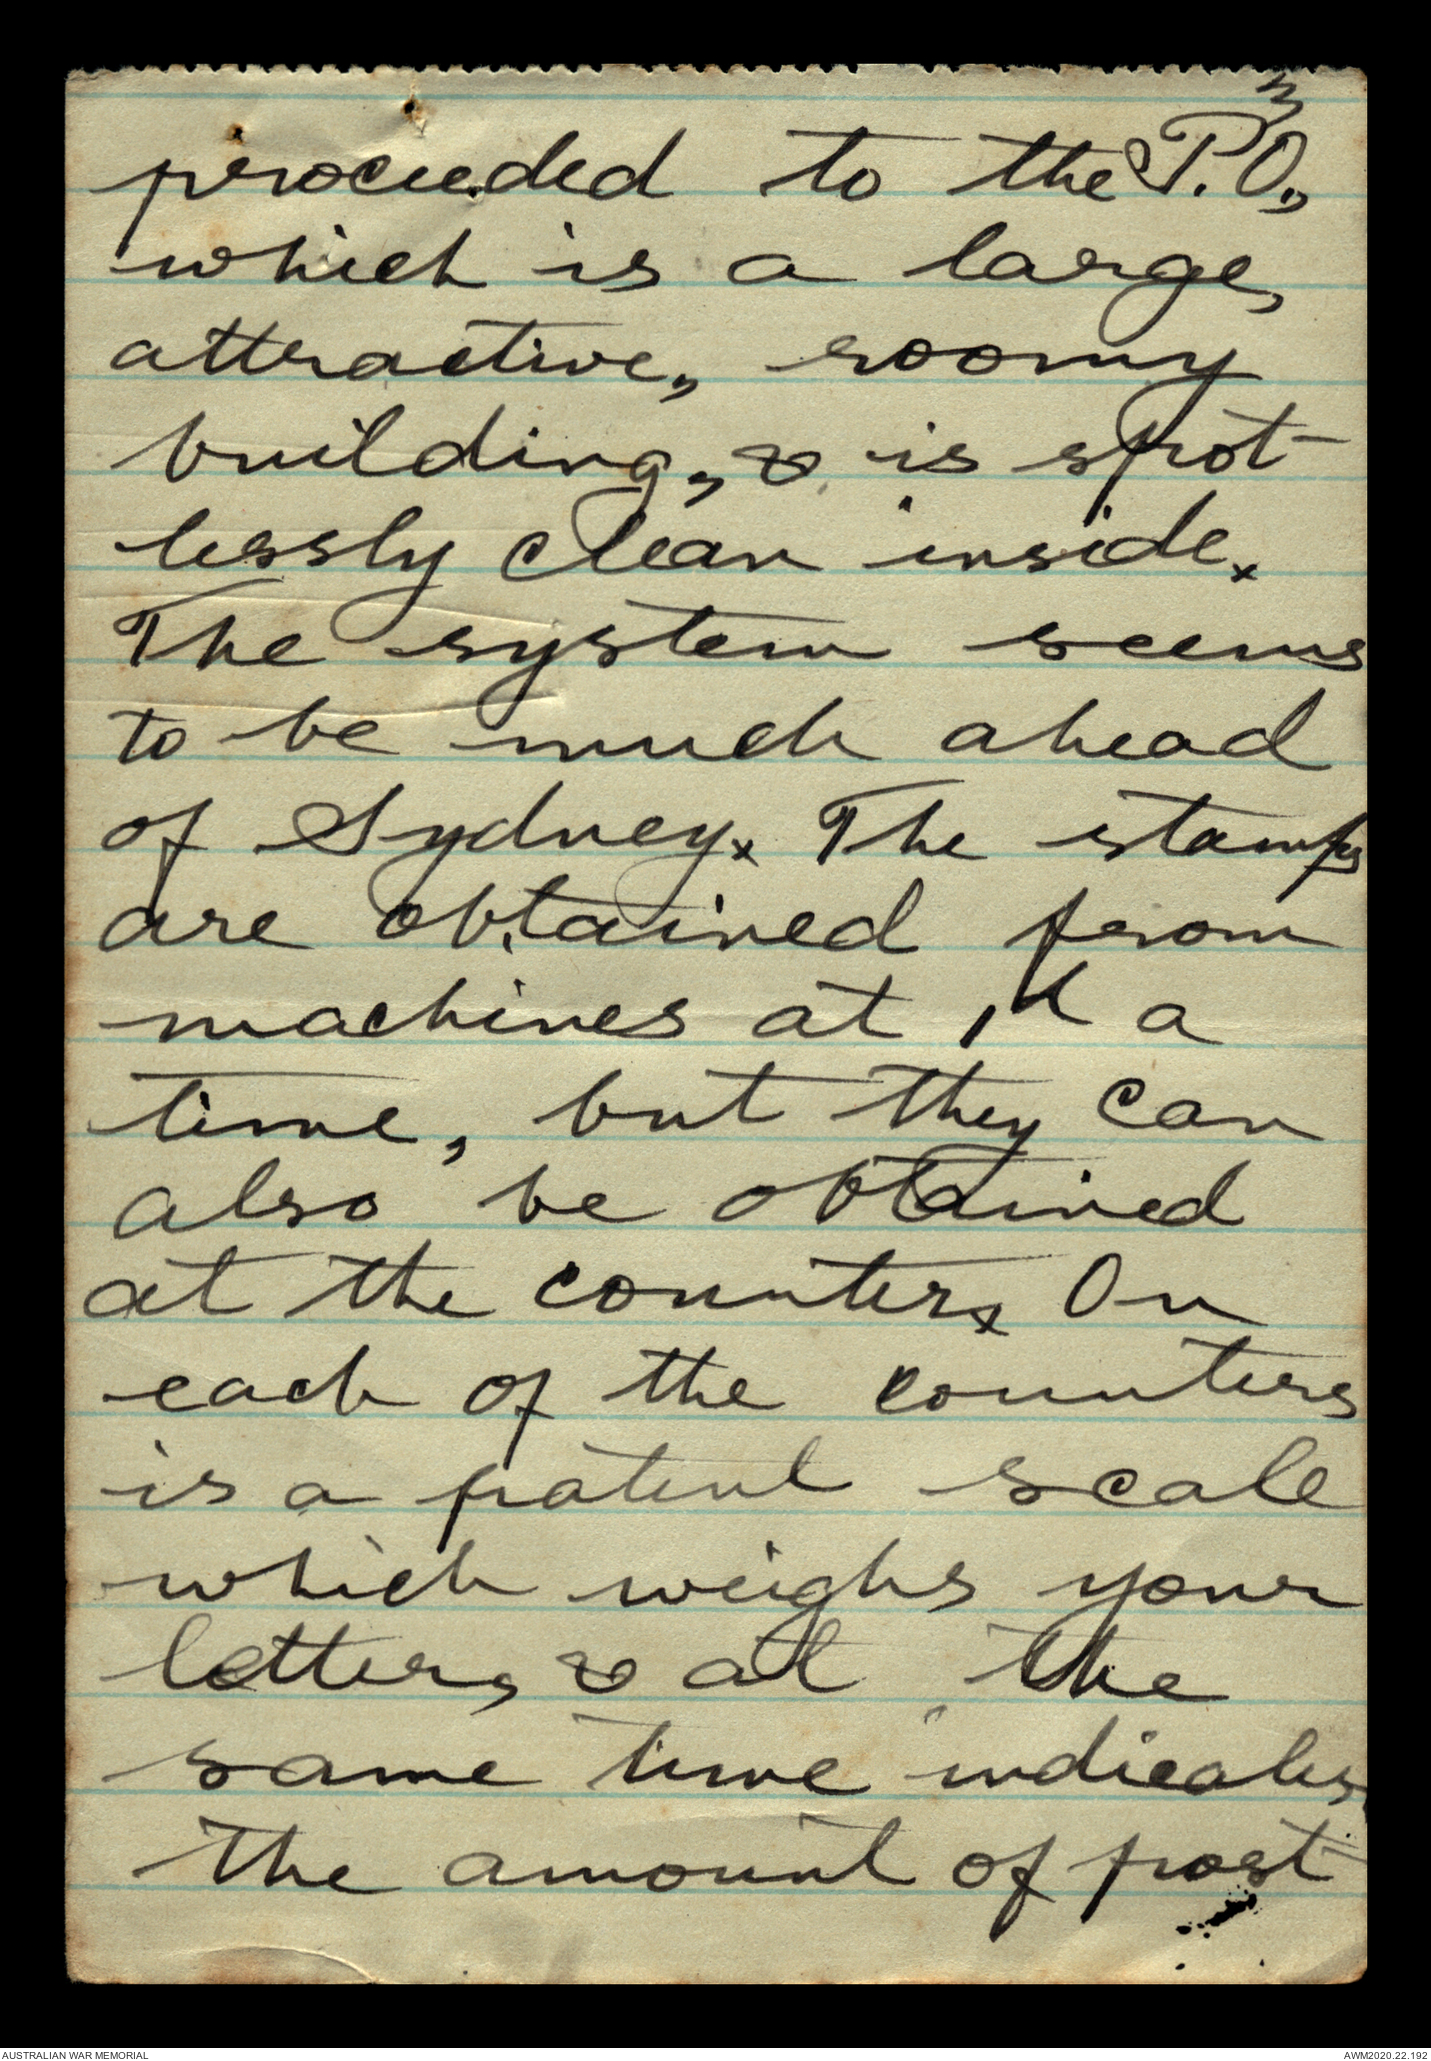 3
proceeded to the P.O.,
which is a large,
attractive, roomy
building, & is spot-
lessly clean inside x
The system seems
to be much ahead
of Sydney x The stamps
are obtained from
machines at 1d a
time, but they can
also be obtained
at the counter x On
each of the counters
is a patent scale
which weighs your
letter, & at the
same time indicates
the amount of post
AUSTRALIAN WAR MEMORIAL
AWM2020.22.192